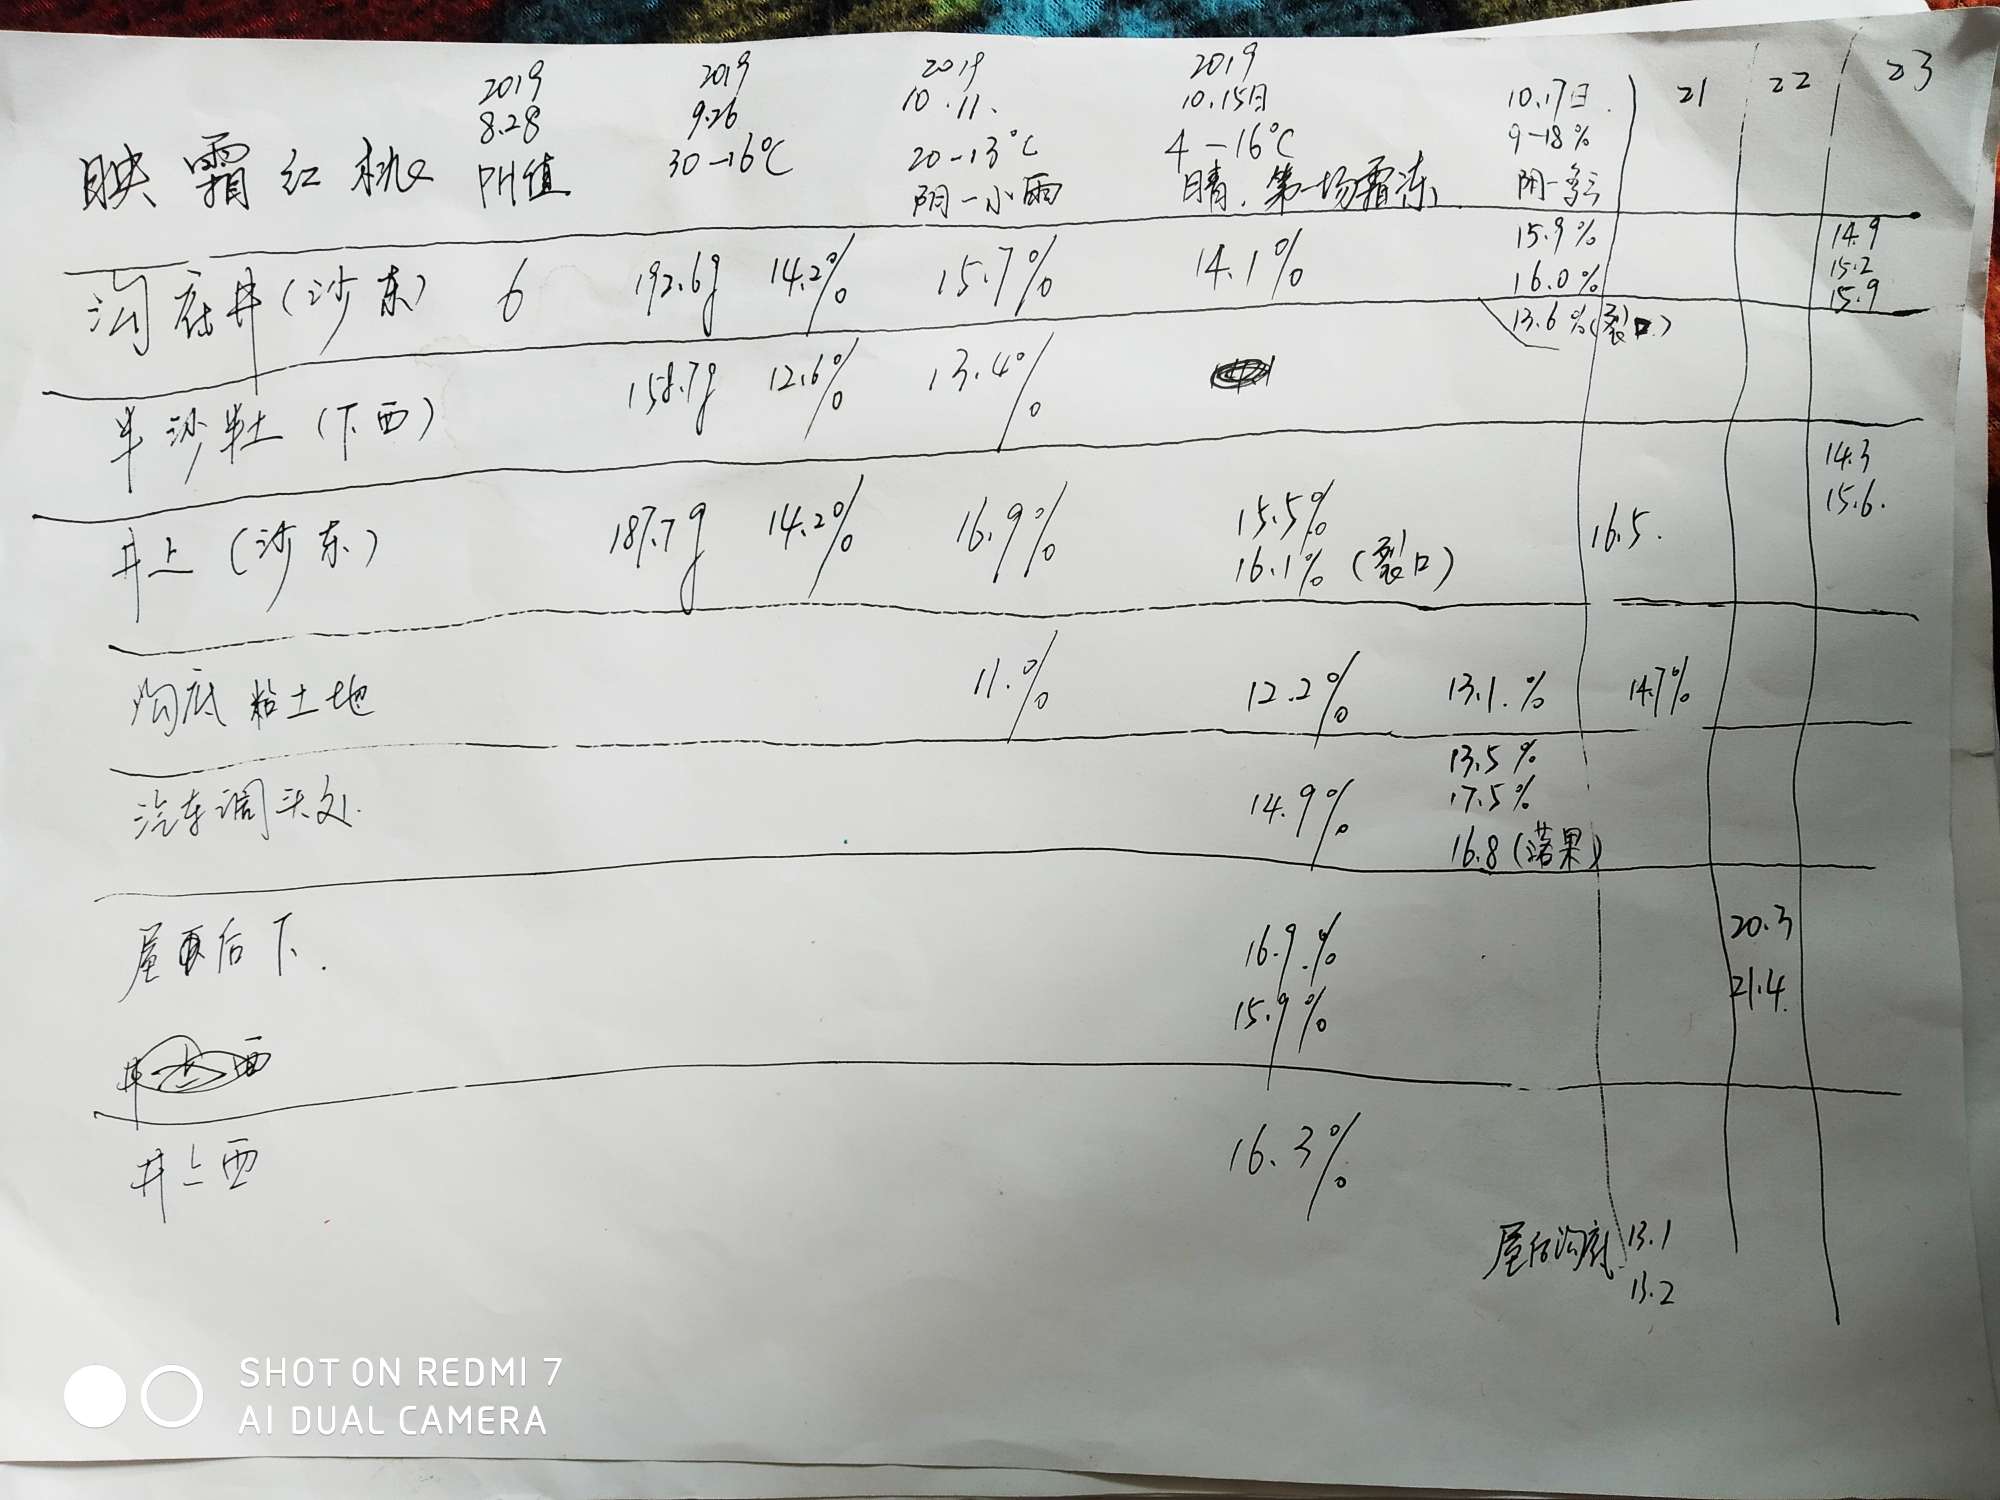 映霜红桃
2019
8.28
PH值
2019
9.26
30-16℃
2019
10.11.
20-13℃
阴-小雨
2019
10.15日
4-16℃
晴.第一场霜冻.
10.17日.
9-18%
阴-多云
21
22
23
沟底井(沙东) 6 192.6g 14.2% 15.7% 14.1%
15.9%
16.0%
13.6%(裂口)
14.9
15.2
15.9
半沙半土(下西) 158.7g 12.6% 13.4%
井上(沙东) 187.7g 14.2% 16.9%
15.5%
16.1%(裂口)
16.5.
14.3
15.6.
沟底粘土地 11.% 12.2% 13.1.% 14.7%
汽车调头处. 14.9%
13.5%
17.5%
16.8(落果)
屋后下.
16.9.%
15.9%
20.3
21.4
井上西 16.3%
屋后沟底 13.1
13.2
SHOT ON REDMI 7
AI DUAL CAMERA